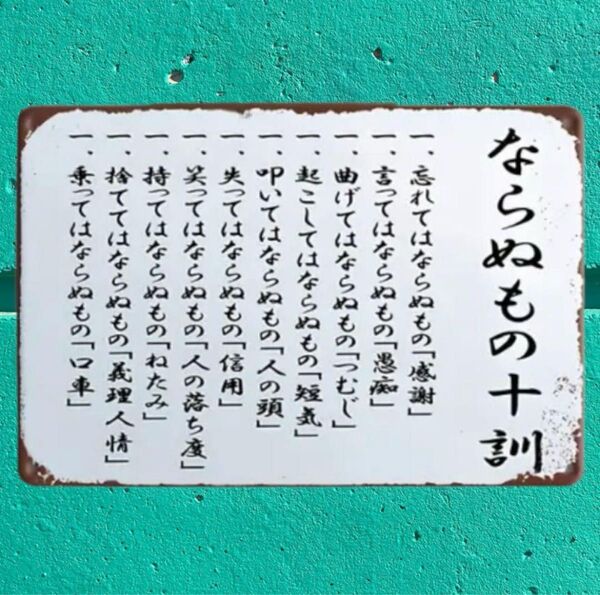 ならぬもの十訓
一、忘れてはならぬもの「感謝」
一、言ってはならぬもの「愚痴」
一、曲げてはならぬもの「つむじ」
一、起こしてはならぬもの「短気」
一、叩いてはならぬもの「人の頭」
一、失ってはならぬもの「信用」
一、笑ってはならぬもの「人の落ち度」
一、持ってはならぬもの「ねたみ」
一、捨ててはならぬもの「義理人情」
一、乗ってはならぬもの「口車」